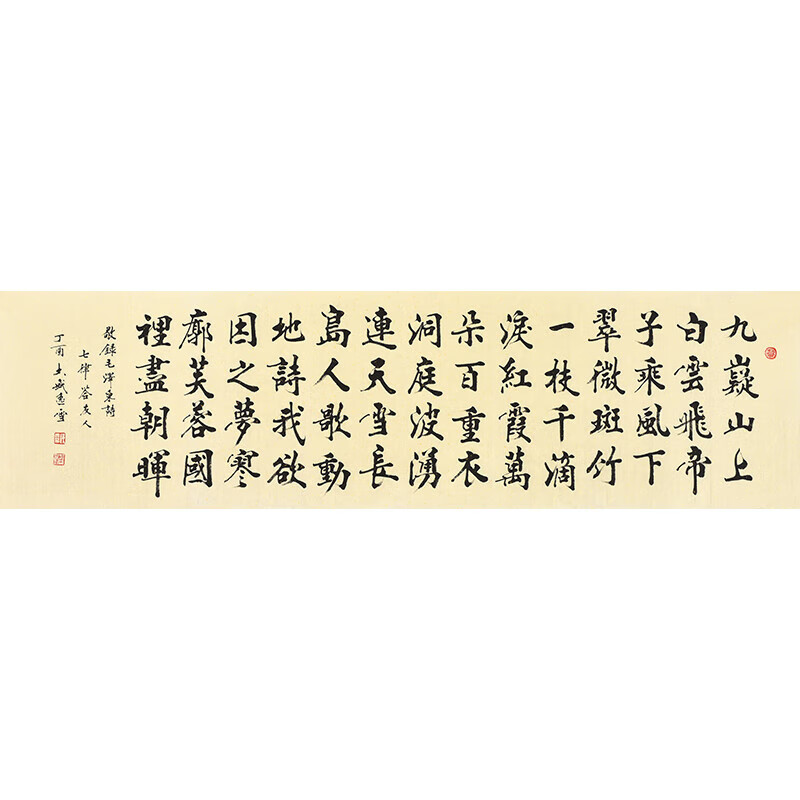 九嶷山上
白雲飛帝
子乘風下
翠微斑竹
一枝千滴
淚紅霞萬
朵百重衣
洞庭波湧
連天雪長
島人歌動
地詩我欲
因之夢寒
廓芙蓉國
裡盡朝暉
敬錄毛澤東詩
七律答友人
丁酉